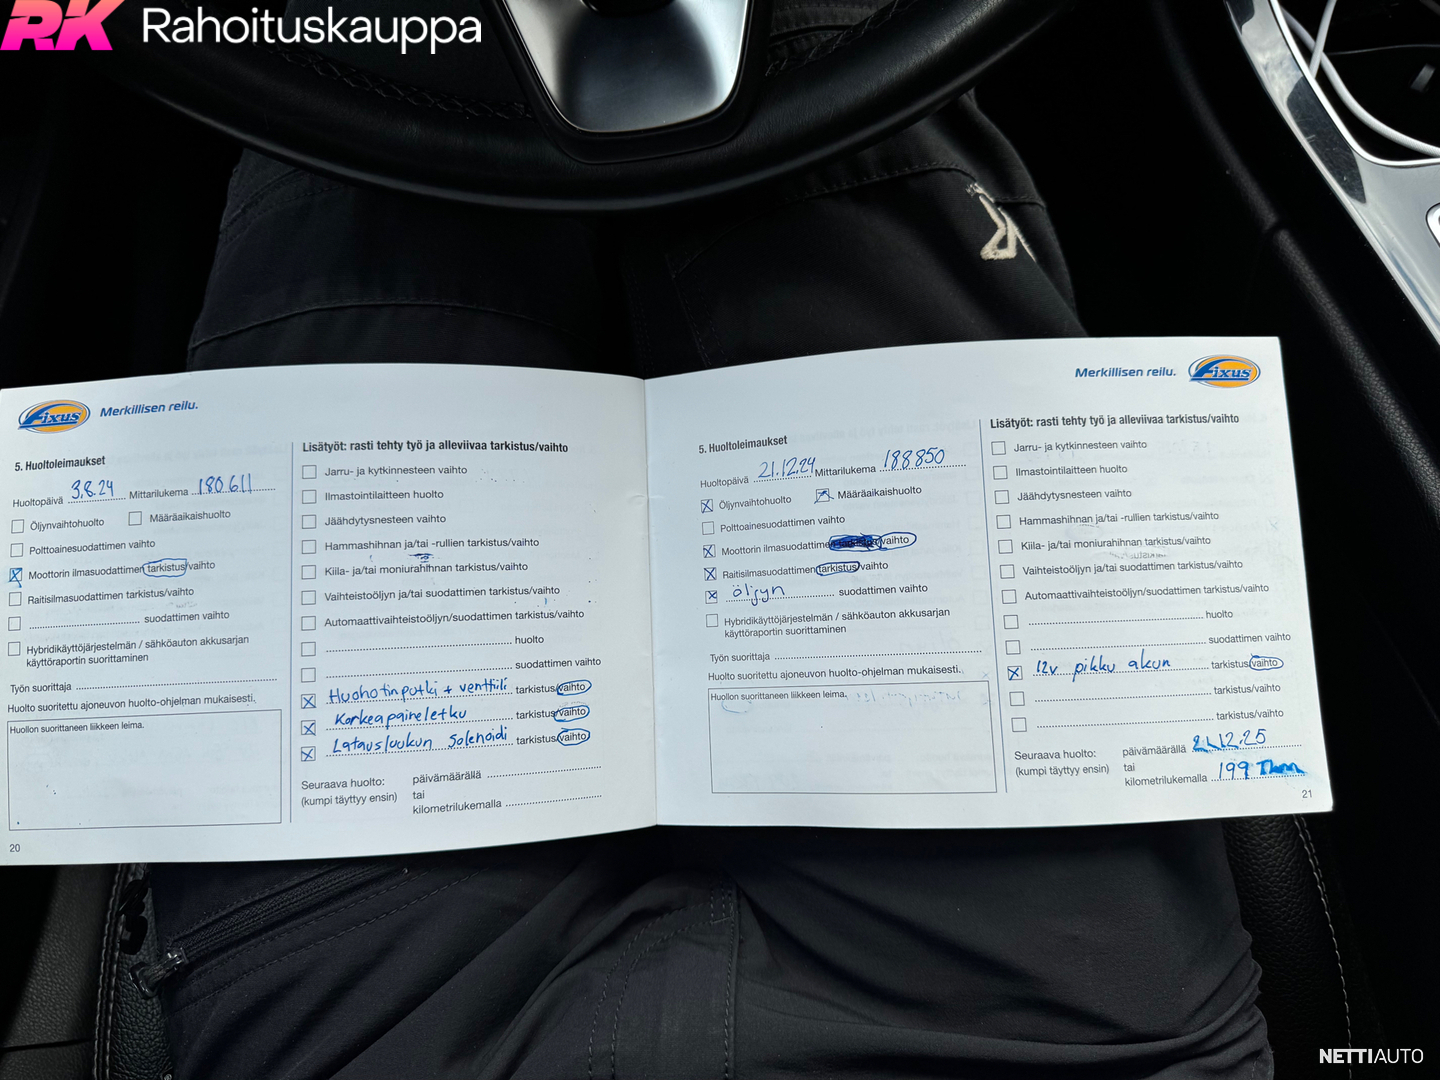 RK Rahoituskauppa
Fixus Merkillisen reilu.
5. Huoltoleimaukset
Huoltopäivä 3.8.24 Mittarilukema 180611
Öljynvaihtohuolto Määräaikaishuolto
Polttoainesuodattimen vaihto
Moottorin ilmasuodattimen tarkistus/vaihto
Raitisilmasuodattimen tarkistus/vaihto
suodattimen vaihto
Hybridikäyttöjärjestelmän / sähköauton akkusarjan
käyttöraportin suorittaminen
Työn suorittaja
Huolto suoritettu ajoneuvon huolto-ohjelman mukaisesti.
Huollon suorittaneen liikkeen leima.
20
Lisätyöt: rasti tehty työ ja alleviivaa tarkistus/vaihto
Jarru- ja kytkinnesteen vaihto
Ilmastointilaitteen huolto
Jäähdytysnesteen vaihto
Hammashihnan ja/tai -rullien tarkistus/vaihto
Kiila- ja/tai moniurahihnan tarkistus/vaihto
Vaihteistoöljyn ja/tai suodattimen tarkistus/vaihto
Automaattivaihteistoöljyn/suodattimen tarkistus/vaihto
huolto
suodattimen vaihto
Huohotinputki + venttiili tarkistus/vaihto
Korkeapaineletku tarkistus/vaihto
Latausluukun Solenoidi tarkistus/vaihto
Seuraava huolto: päivämäärällä
(kumpi täyttyy ensin) tai
kilometrilukemalla
Merkillisen reilu. Fixus
5. Huoltoleimaukset
Huoltopäivä 21.12.24 Mittarilukema 188850
Öljynvaihtohuolto Määräaikaishuolto
Polttoainesuodattimen vaihto
Moottorin ilmasuodattimen vaihto
Raitisilmasuodattimen tarkistus/vaihto
öljyn suodattimen vaihto
Hybridikäyttöjärjestelmän / sähköauton akkusarjan
käyttöraportin suorittaminen
Työn suorittaja
Huolto suoritettu ajoneuvon huolto-ohjelman mukaisesti.
Huollon suorittaneen liikkeen leima.
Lisätyöt: rasti tehty työ ja alleviivaa tarkistus/vaihto
Jarru- ja kytkinnesteen vaihto
Ilmastointilaitteen huolto
Jäähdytysnesteen vaihto
Hammashihnan ja/tai -rullien tarkistus/vaihto
Kiila- ja/tai moniurahihnan tarkistus/vaihto
Vaihteistoöljyn ja/tai suodattimen tarkistus/vaihto
Automaattivaihteistoöljyn/suodattimen tarkistus/vaihto
huolto
suodattimen vaihto
12v pikku akun tarkistus/vaihto
tarkistus/vaihto
tarkistus/vaihto
Seuraava huolto: päivämäärällä 21.12.25
(kumpi täyttyy ensin) tai
kilometrilukemalla 199
21
NETTIAUTO